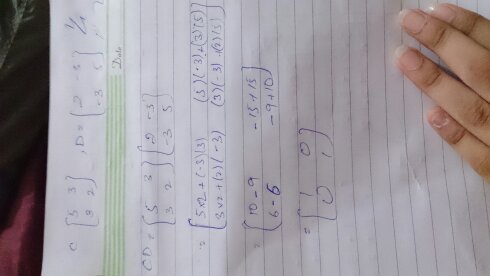 C [5 3 , D = [2 -3
3 2] -3 5]
Date
CD = [5 3 [2 -3
3 2] -3 5]
= [5×2+(-3)(3) (5)(-3)+(3)(5)
3×2+(2)(-3) (3)(-3)+(2)(5)]
= [10-9 -15+15
6-6 -9+10]
= [1 0
0 1]